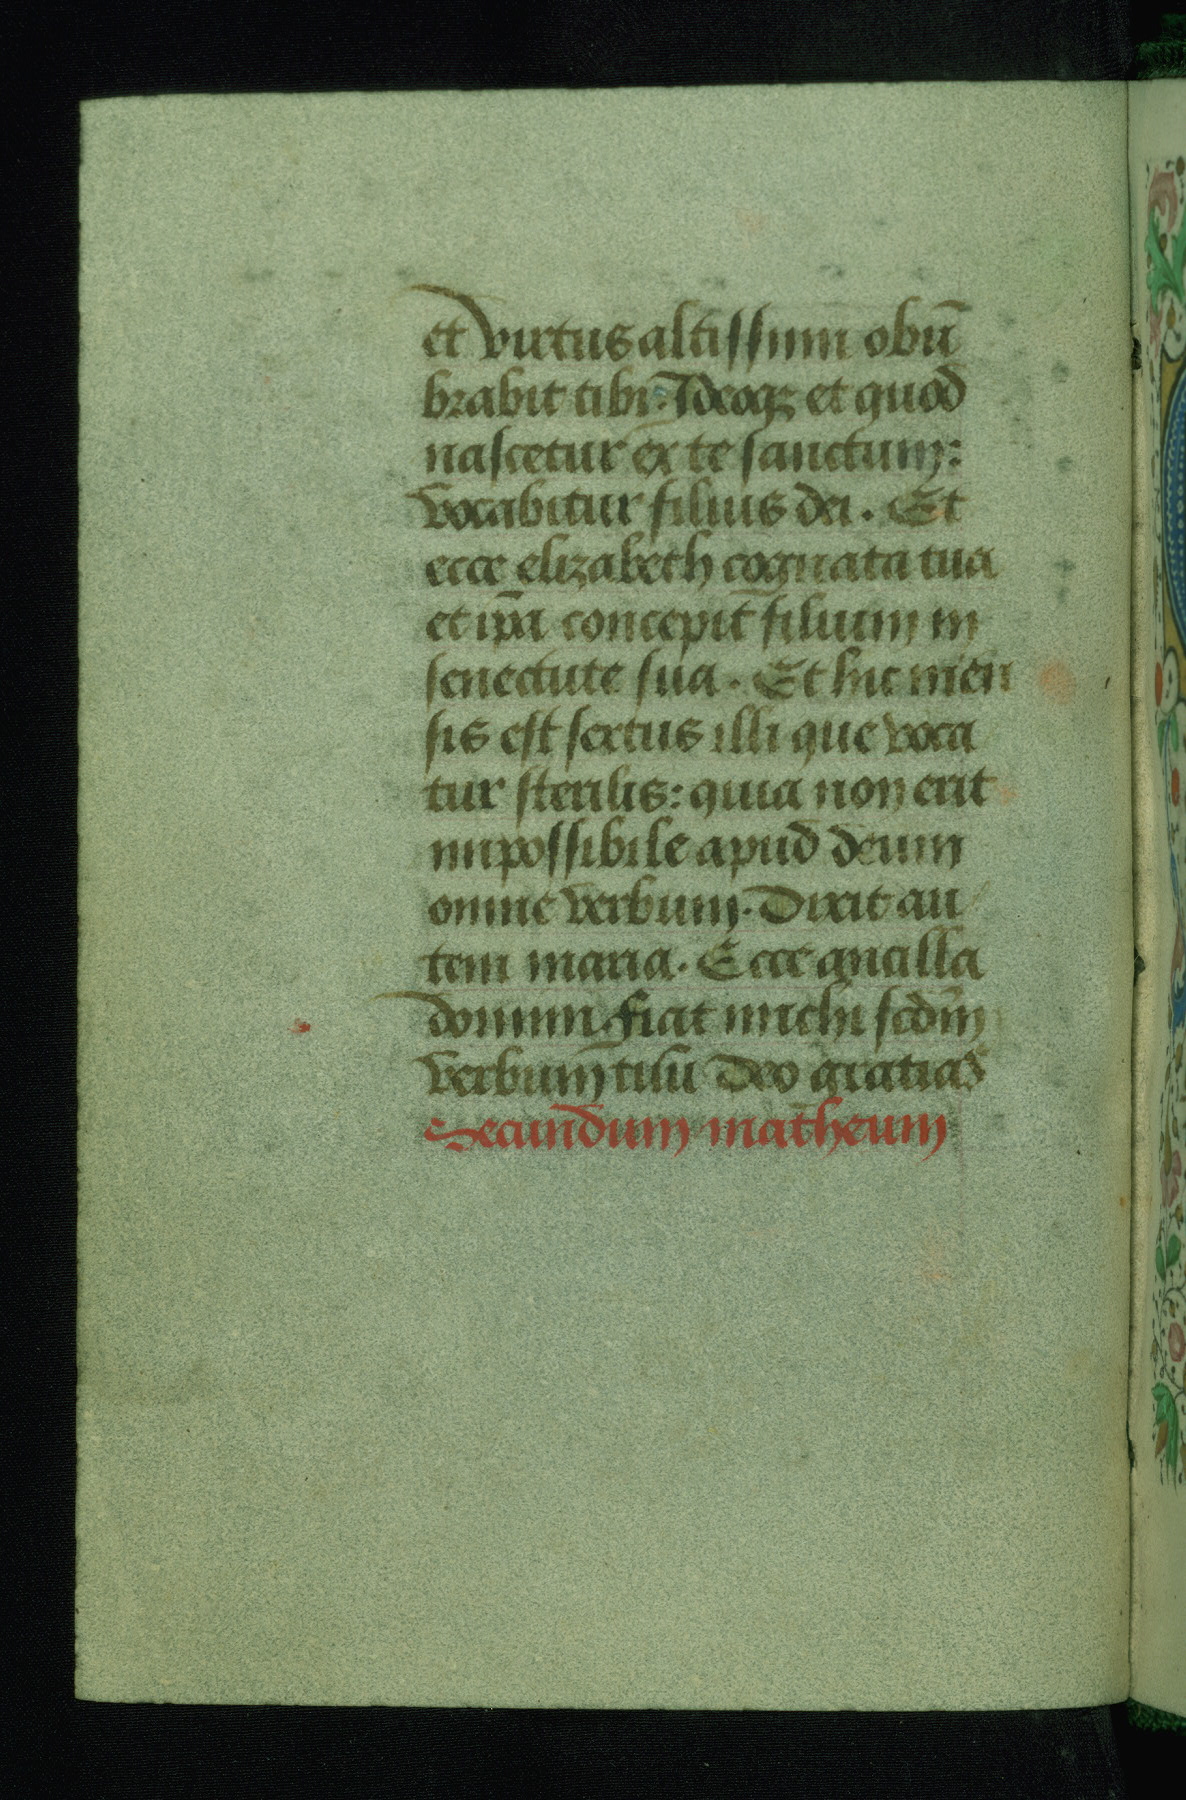 et virtus altissimi obū
brabit tibi. Ideoqꝫ et quod
nascetur ex te sanctum:
vocabitur filius dei. Et
ecce elizabeth cognata tua
et ip̄a concepit filium in
senectute sua. Et hic men
sis est sextus illi que voca
tur sterilis: quia non erit
impossibile apud deum
omne verbum. Dixit au
tem maria. Ecce ancilla
domini. fiat michi scdm̄
verbum tuū Deo gratias
Secundum matheum